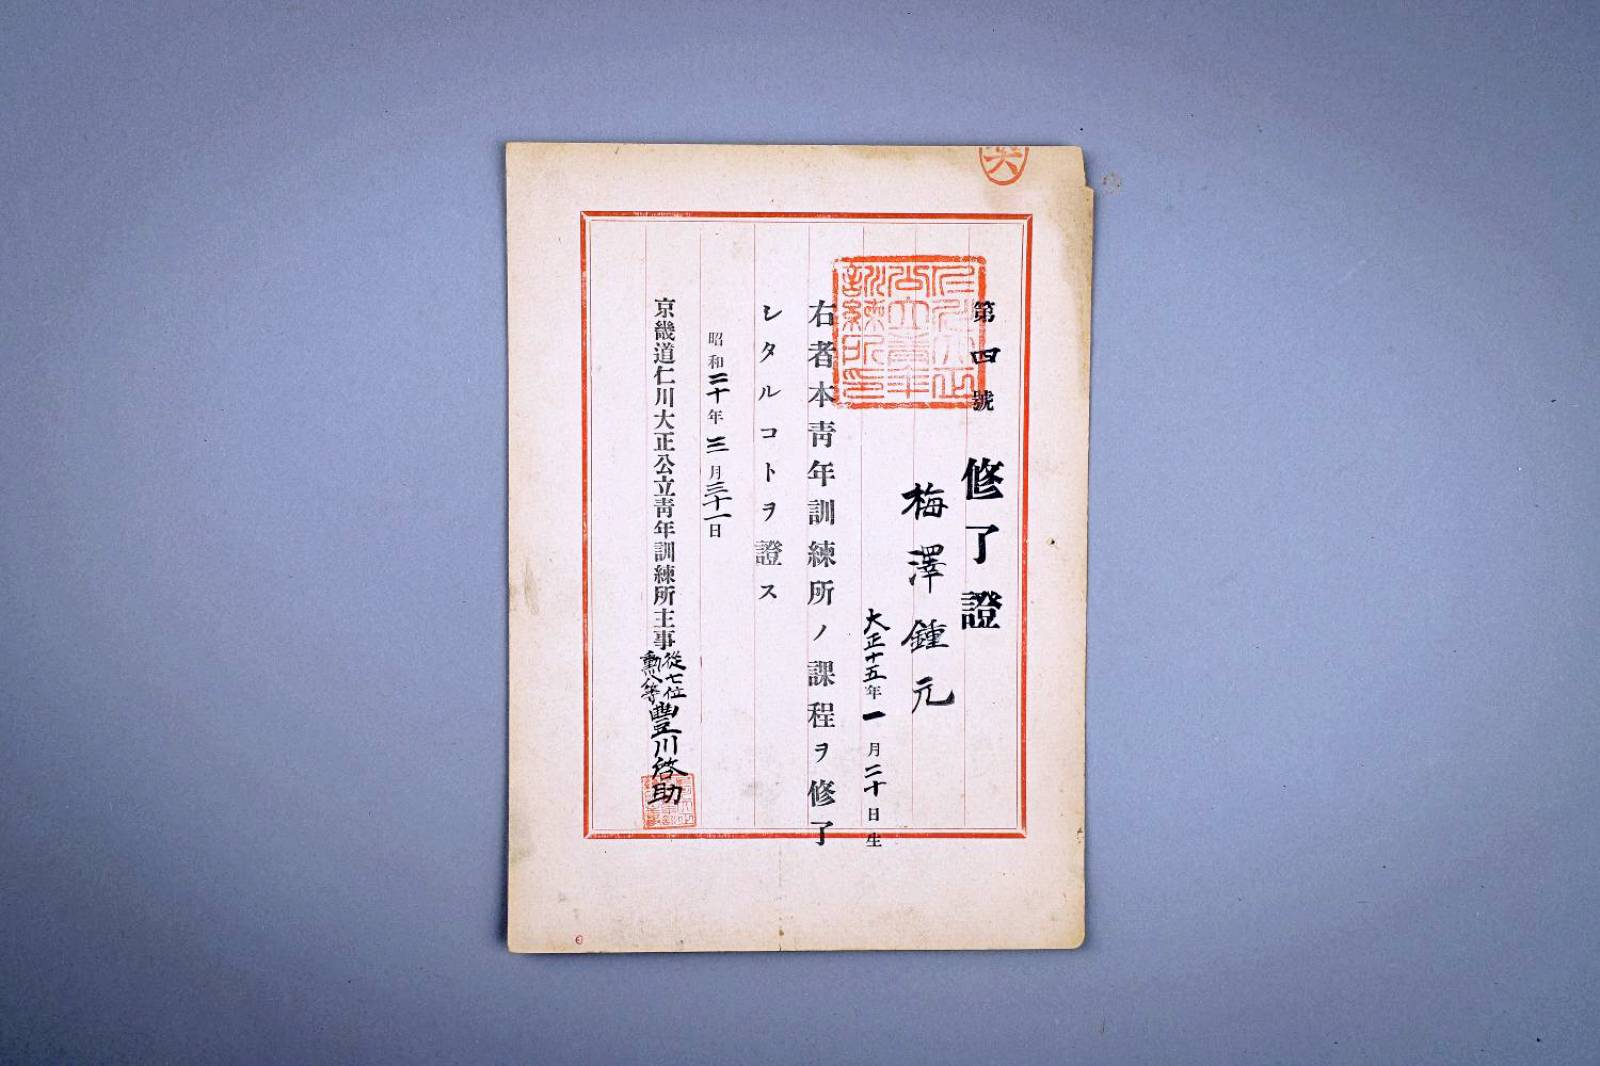 第四號
修了證
梅澤鍾元
大正十五年一月二十日生
右者本青年訓練所ノ課程ヲ修了
シタルコトヲ證ス
昭和二十年三月三十一日
京畿道仁川大正公立青年訓練所主事從七位勲八等豐川啓助
仁川大正公立青年訓練所印